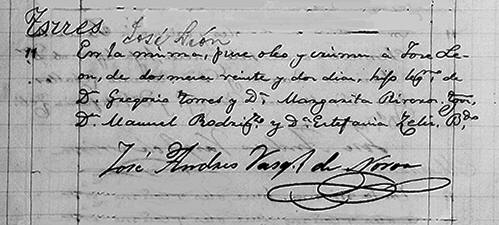 Torres
José León
11
En la misma, puse oleo y crisma á Jose Le-
on, de dos meses veinte y dos dias, hijo legº de
Dn Gregorio Torres y Dª Margarita
Dn Manuel Rodrigz y Dª Estefania Zeliz, Bdo
José Andres Vasqz de Novoa